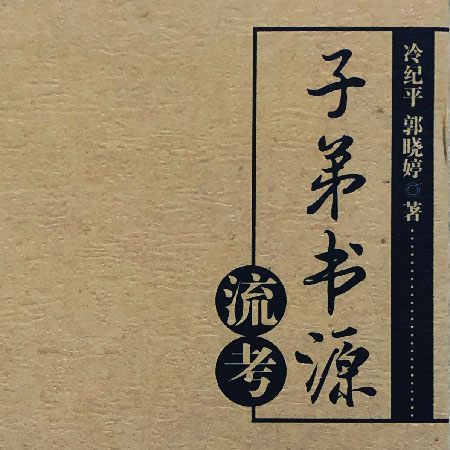 冷纪平 郭晓婷◎著
子弟书源
流考